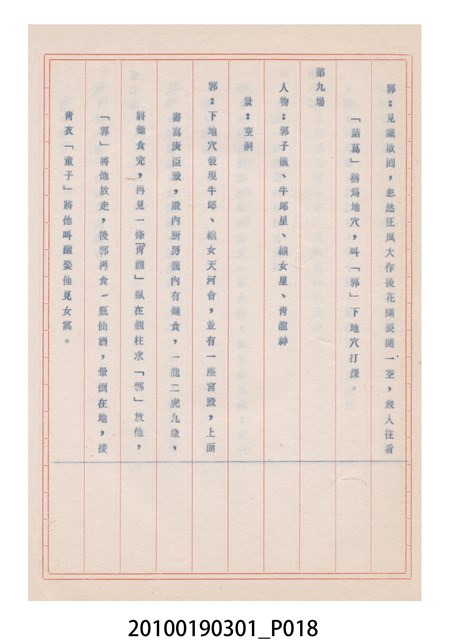 郭：見職放回，忽然狂風大作後花園裂開一空，眾人往看
「諸葛」稱爲地穴，叫「郭」下地穴打探。
第九場
人物：郭子儀、牛郎星、織女星、青龍神
景：空洞
郭：下地穴發現牛郎、織女天河會，並有一座宮殿，上面
書寫庚臣殿，殿內厨房籠內有麵食，一龍二虎九歲，
將麵食完，再見一條「青龍」臥在龍柱求「郭」放他，
「郭」將他放走，後郭再食一瓶仙酒，暈倒在地，接
青衣「童子」將他叫醒要他見女
20100190301_P018